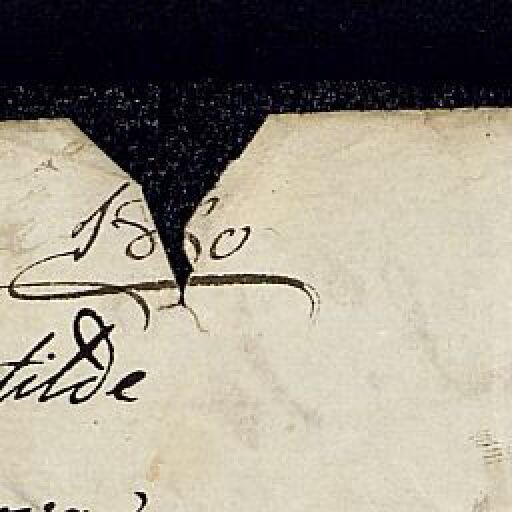 1860
tilde